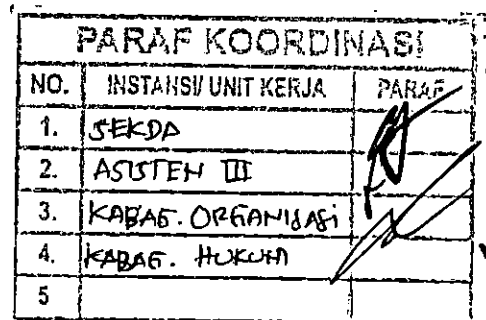 PARAF KOORDINASI
NO. INSTANSI/ UNIT KERJA PARAF
1. SEKDA
2. ASISTEN III
3. KABAG. ORGANISASI
4. KABAG. HUKUM
5